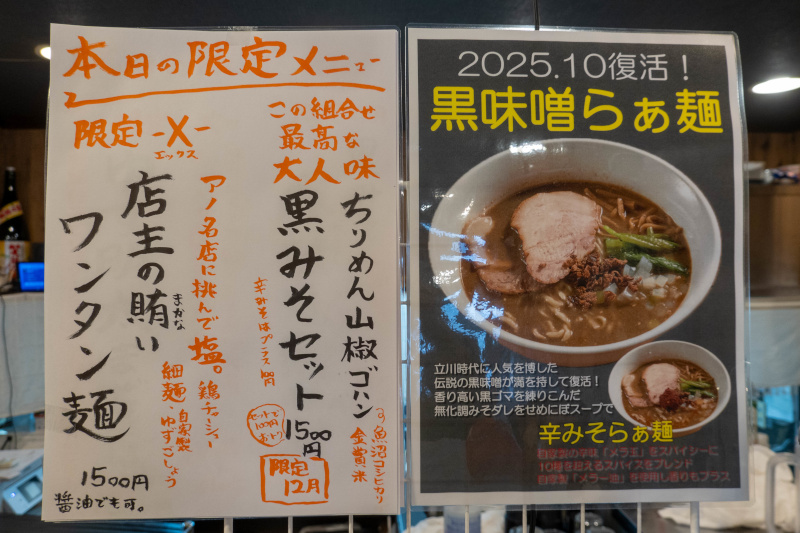 本日の限定メニュー
この組合せ
最高な
大人味
ちりめん山椒ゴハン
魚沼コシヒカリ
金賞米
黒みそセット
1500円
辛みそはプラス100円
セットで
100円
おトク
限定
12月
限定-X-
エックス
アノ名店に挑んで塩。
鶏チャーシュー
自家製
細麺・ゆずこしょう
店主の賄い
まかな
ワンタン麺
1500円
醤油でも可。
2025.10復活！
黒味噌らぁ麺
立川時代に人気を博した
伝説の黒味噌が満を持して復活！
香り高い黒ゴマを練りこんだ
無化調みそダレをせめにぼスープで
辛みそらぁ麺
自家製の辛味「メラ玉」をスパイシーに
10種を超えるスパイスをブレンド
自家製「メラー油」を使用し香りもプラス